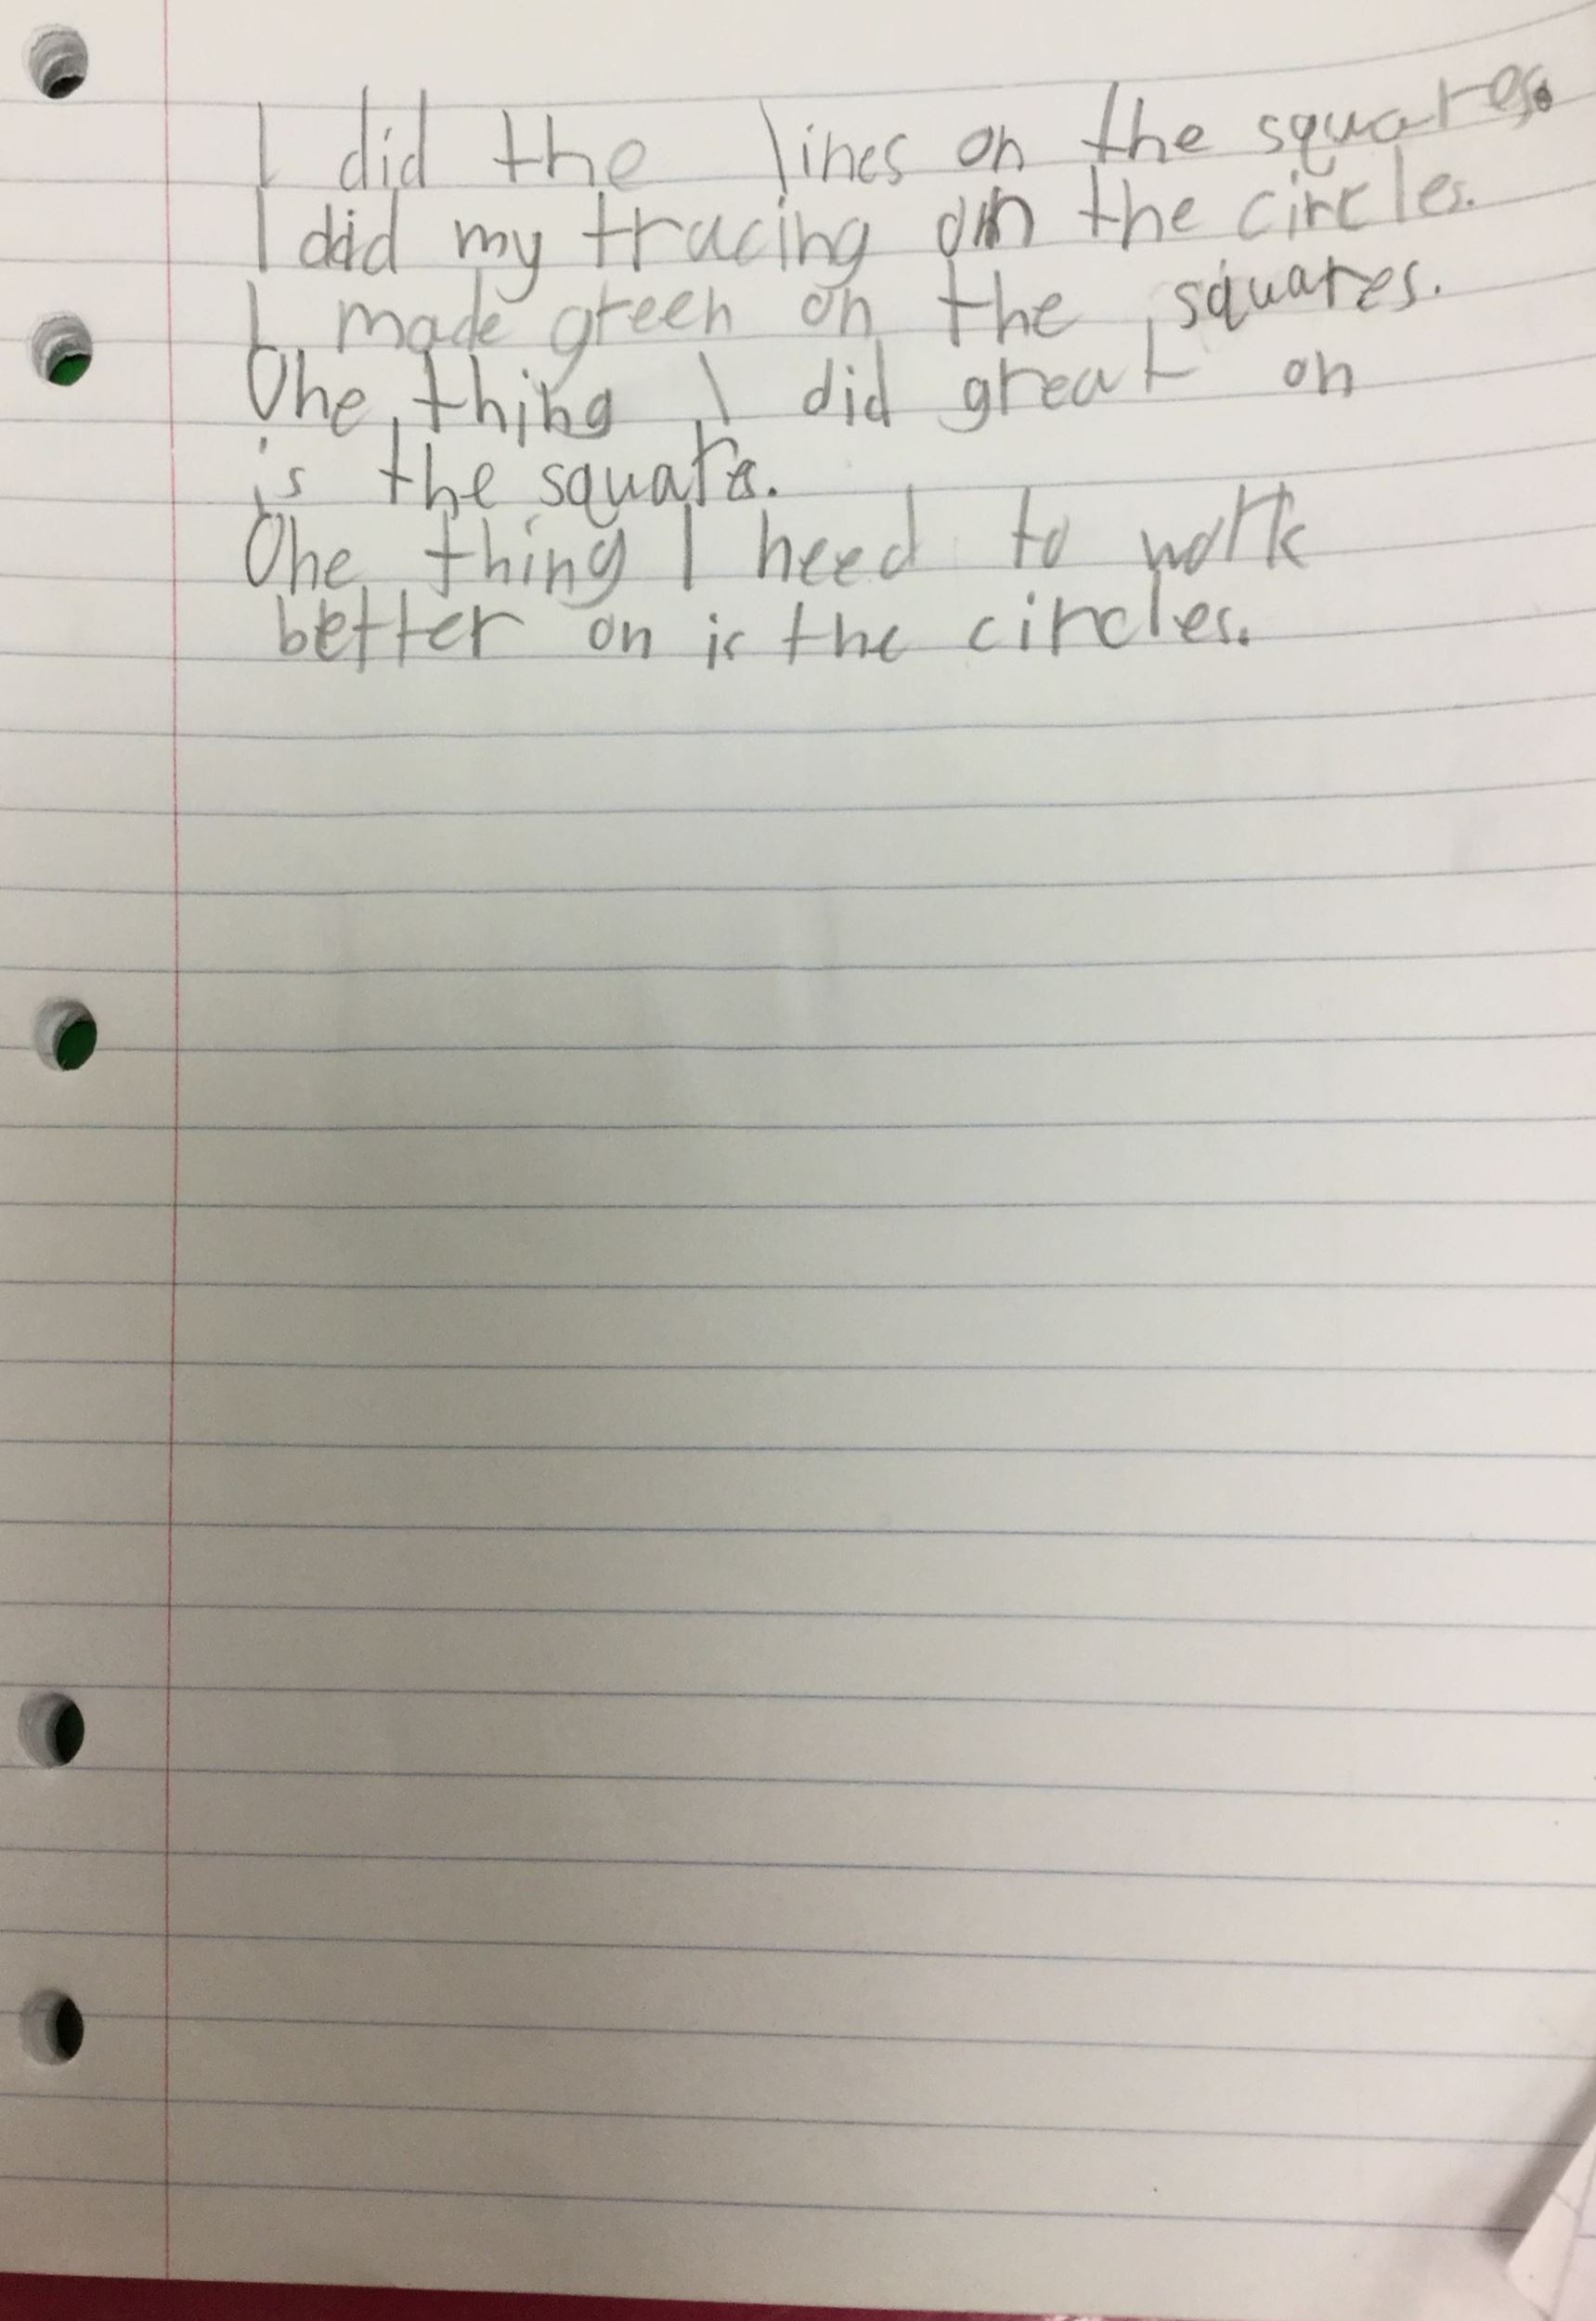 I did the lines on the squares.
I did my tracing on the circles.
I made green on the squares.
One thing I did great on
is the square.
One thing I need to work
better on is the circles.